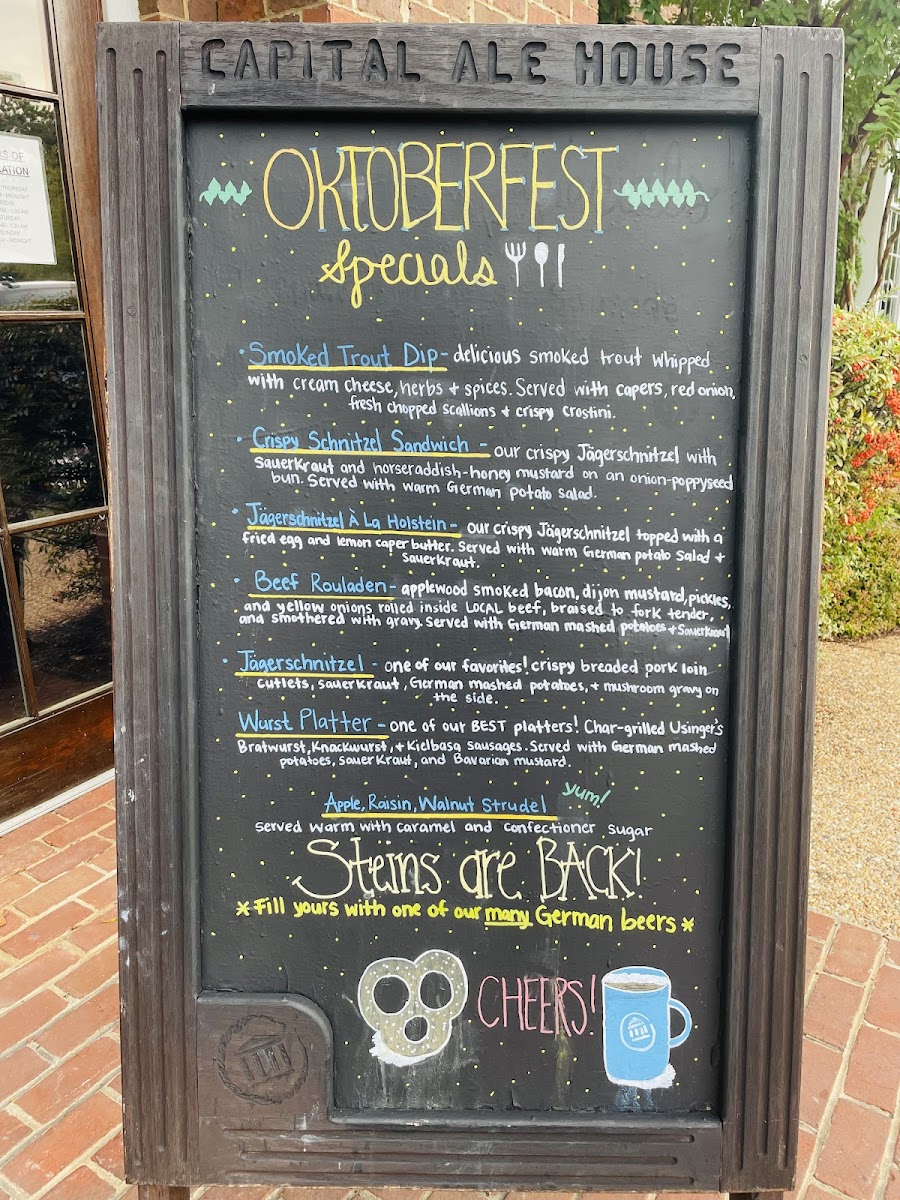 CAPITAL ALE HOUSE
OKTOBERFEST
Specials
• Smoked Trout Dip - delicious smoked trout whipped
with cream cheese, herbs + spices. Served with capers, red onion,
fresh chopped scallions + crispy crostini.
• Crispy Schnitzel Sandwich - our crispy Jägerschnitzel with
sauerkraut and horseraddish-honey mustard on an onion-poppyseed
bun. Served with warm German potato salad.
• Jägerschnitzel À La Holstein - our crispy Jägerschnitzel topped with a
fried egg and lemon caper butter. Served with warm German potato salad +
sauerkraut.
• Beef Rouladen - applewood smoked bacon, dijon mustard, pickles,
and yellow onions rolled inside LOCAL beef, braised to fork tender,
and smothered with gravy. Served with German mashed potatoes + sauerkraut
• Jägerschnitzel - one of our favorites! crispy breaded pork loin
cutlets, sauerkraut, German mashed potatoes, + mushroom gravy on
the side.
Wurst Platter - one of our BEST platters! Char-grilled Usinger's
Bratwurst, Knackwurst, + Kielbasa sausages. Served with German mashed
potatoes, sauerkraut, and Bavarian mustard.
Apple, Raisin, Walnut Strudel yum!
served warm with caramel and confectioner sugar
Steins are BACK!
* Fill yours with one of our many German beers *
CHEERS!